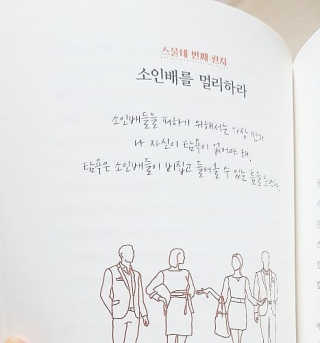 스물네 번째 편지
소인배를 멀리하라
소인배들을 피하기 위해서는 가장 먼저
나 자신이 탐욕이 없어야 돼.
탐욕은 소인배들이 비집고 들어올 수 있는 틈을